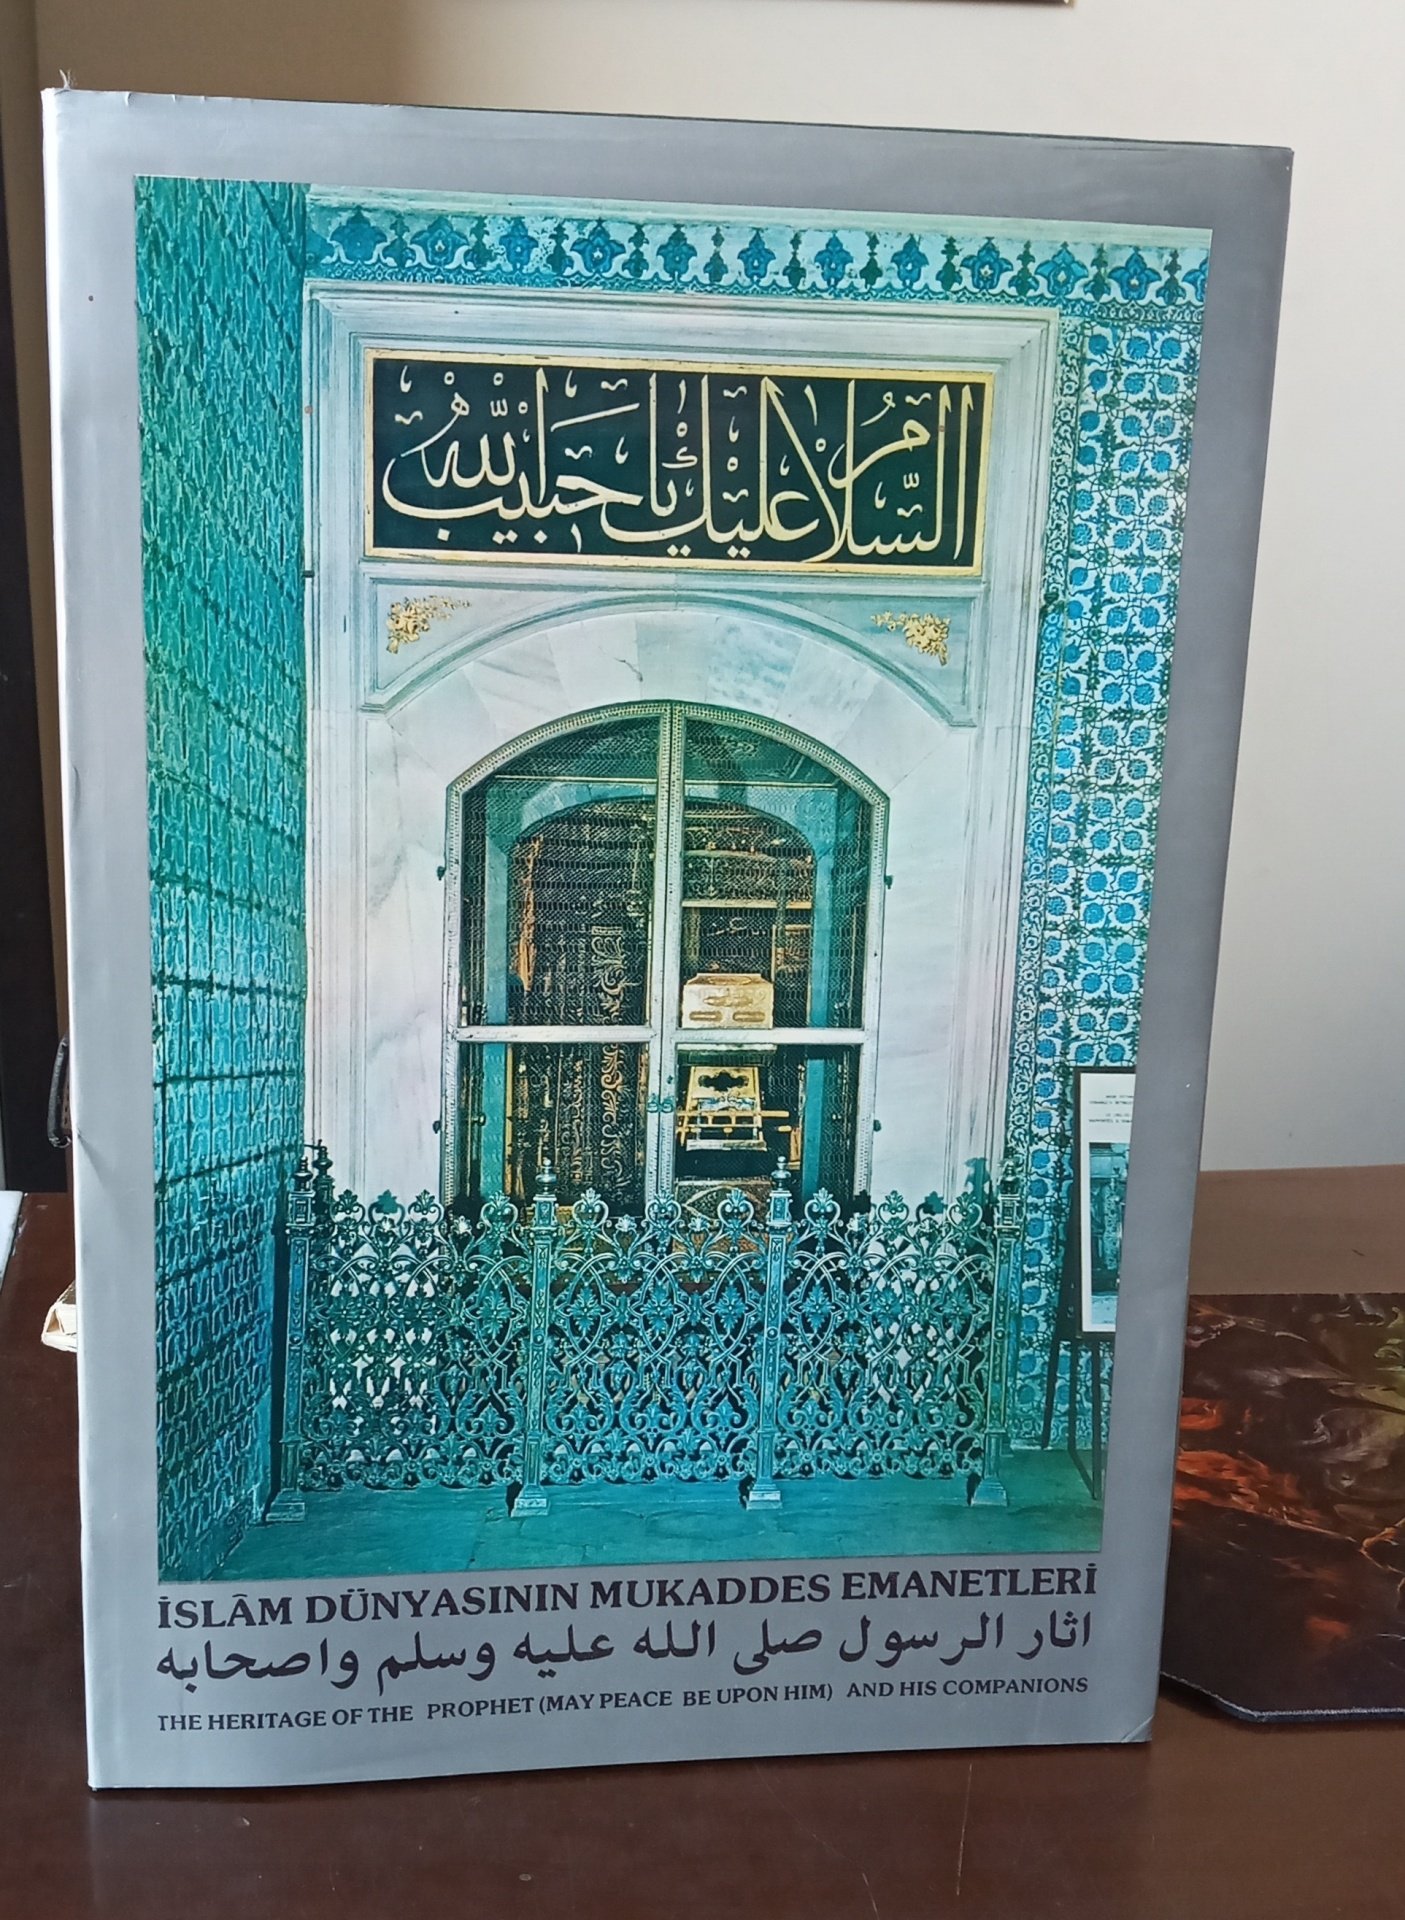 السلام عليك يا حبيب الله
İSLÂM DÜNYASININ MUKADDES EMANETLERİ
اثار الرسول صلى الله عليه وسلم واصحابه
THE HERITAGE OF THE PROPHET (MAY PEACE BE UPON HIM) AND HIS COMPANIONS